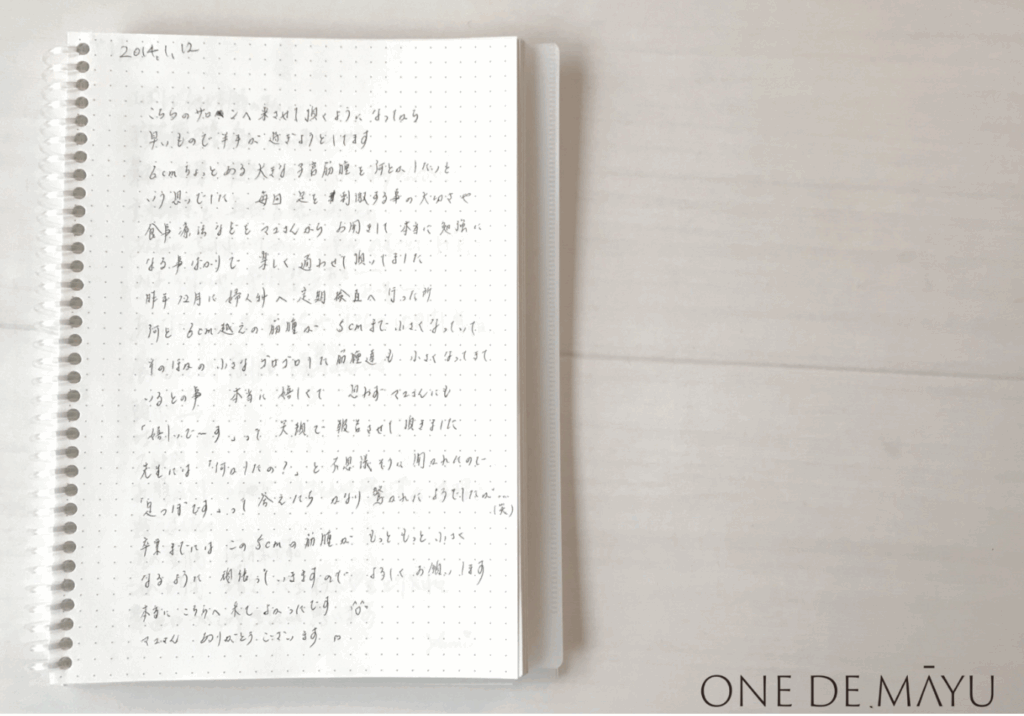 2014.1.12
こちらのサロンへ来させて頂くようになってから
早いもので半年が過ぎようとしてます
6cmちょっとある大きな子宮筋腫を何とかしたいと
いう思いでした 毎日 足を刺激する事の大切さや
食事療法などをマユさんからお聞きして本当に勉強に
なる事ばかりで 楽しく通わせて頂いてました
昨年12月に婦人科へ定期検査へ行った所
何と 6cm越えの筋腫が 5cmまで小さくなっていて
そのほかの小さなゴロゴロした筋腫達も 小さくなってきて
いるとの事 本当に 嬉しくて 思わずマユさんにも
「嬉しいでーす」って 笑顔で報告させて頂きました
先生には「何かしたの?」と不思議そうに聞かれたので
「足つぼです」って 答えたら かなり驚かれたようでしたが…
(笑)
卒業までには この5cmの筋腫が もっともっと小さく
なるように 頑張っていきますので よろしくお願いします
本当に こちらへ来てよかったです ^o^
マユさん ありがとうございます。
ONE DE.MĀYU